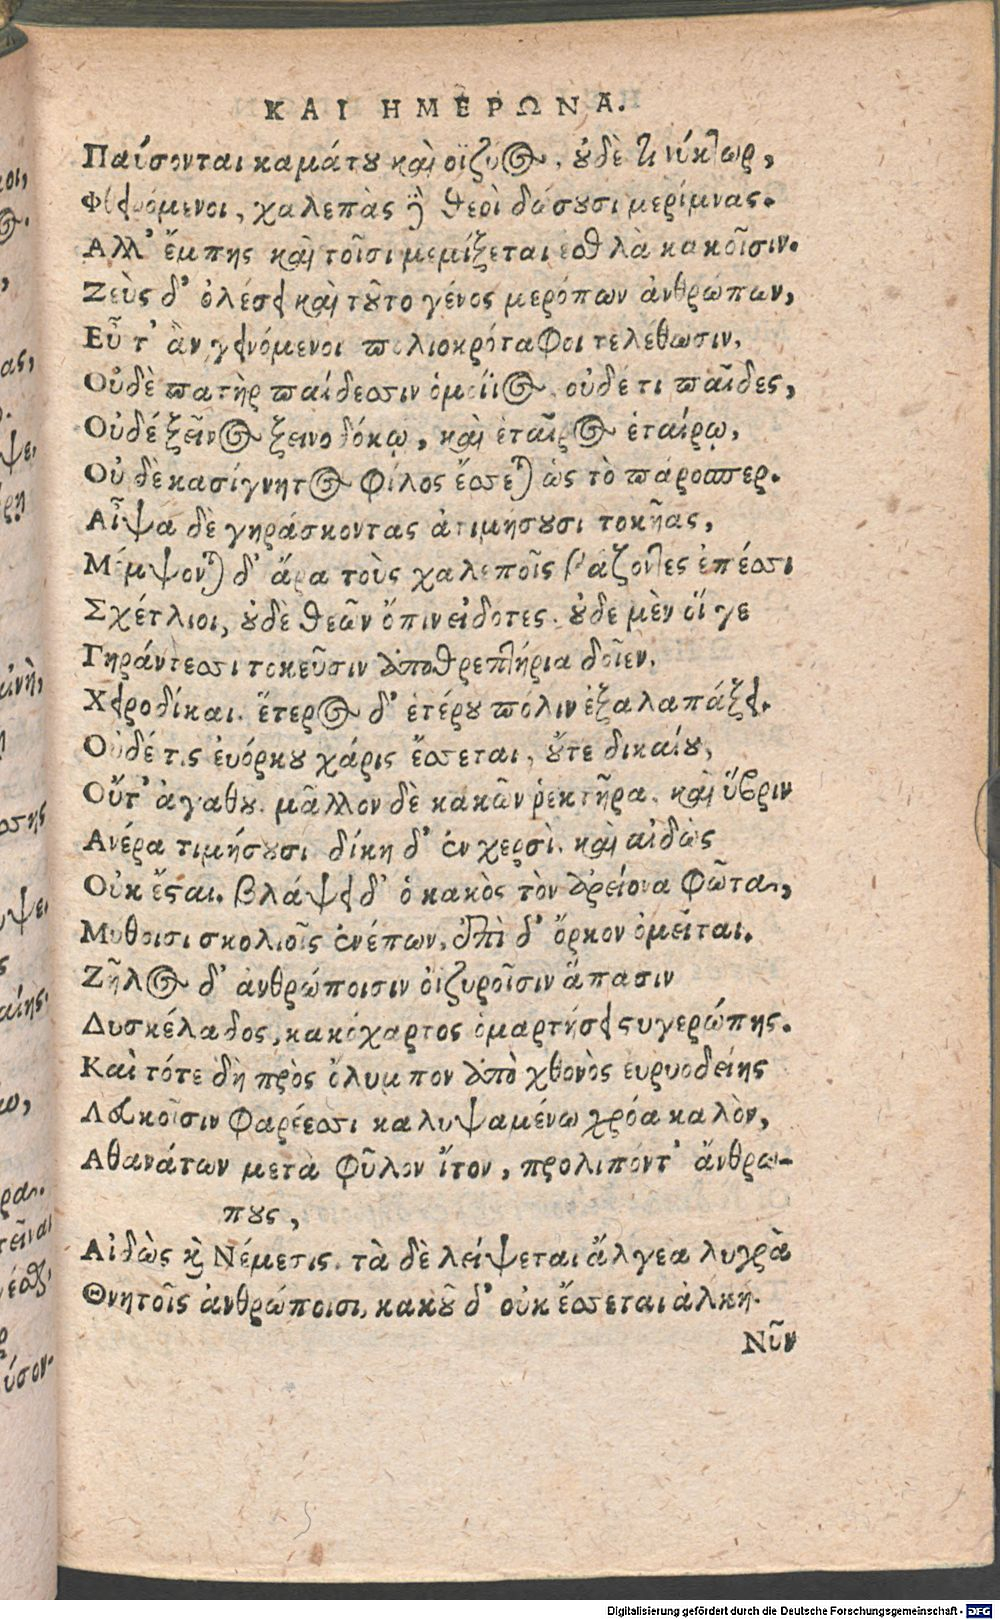 ΚΑΙ ΗΜΕΡΩΝ Α.
Παύσονται καμάτου καὶ οϊζύος, οὐδέ τι νύκτωρ,
Φθειρόμενοι, χαλεπὰς δὲ θεοὶ δώσουσι μερίμνας.
Αλλ' ἔμπης καὶ τοῖσι μεμίξεται ἐσθλὰ κακοῖσιν.
Ζεὺς δ' ὀλέσει καὶ τοῦτο γένος μερόπων ἀνθρώπων,
Εὖτ' ἂν γεινόμενοι πολιοκρόταφοι τελέθωσιν.
Οὐδὲ πατὴρ παίδεσσιν ὁμοίϊος, οὐδέ τι παῖδες,
Οὐδέ ξεῖνος ξεινοδόκῳ, καὶ ἑταῖρος ἑταίρῳ,
Οὐδὲ κασίγνητος φίλος ἔσσεται ὡς τὸ πάροσπερ.
Αἶψα δὲ γηράσκοντας ἀτιμήσουσι τοκῆας,
Μέμψονται δ' ἄρα τοὺς χαλεποῖς βάζοντες ἐπέσσι
Σχέτλιοι, οὐδὲ θεῶν ὄπιν εἰδότες. οὐδε μὲν οἵ γε
Γηράντεσσι τοκεῦσιν ἀπο θρεπτήρια δοῖεν,
Χειροδίκαι. ἕτερος δ' ἑτέρου πόλιν ἐξαλαπάξει.
Οὐδέ τις ἐυόρκου χάρις ἔσσεται, οὔτε δικαίου,
Οὔτ' ἀγαθου. μᾶλλον δὲ κακῶν ῥεκτῆρα, καὶ ὕβριν
Ανέρα τιμήσουσι δίκη δ' ἐν χερσὶ. καὶ αἰδὼς
Οὐκ ἔσαι. βλάψει δ' ὁ κακὸς τὸν ἀρείονα φῶτα,
Μυθοισι σκολιοῖς ἐνέπων, ἐπὶ δ' ὅρκον ὀμεῖται.
Ζῆλος δ' ἀνθρώποισιν οἰζυροῖσιν ἅπασιν
Δυσκέλαδος, κακόχαρτος ὁμαρτήσει στυγερώπης.
Καὶ τότε δὴ πρὸς ὄλυμπον ἀπὸ χθονὸς ευρυοδείης
Λευκοῖσιν φαρέεσσι καλυψαμένω χρόα καλὸν,
Αθανάτων μετὰ φῦλον ἴτον, προλιπόντ' ἄνθρω-
πους,
Αἰδὼς καὶ Νέμεσις. τὰ δὲ λείψεται ἄλγεα λυγρὰ
Θνητοῖς ἀνθρώποισι, κακοῦ δ' οὐκ ἔσσεται ἀλκή.
Νῦν
Digitalisierung gefördert durch die Deutsche Forschungsgemeinschaft - DFG